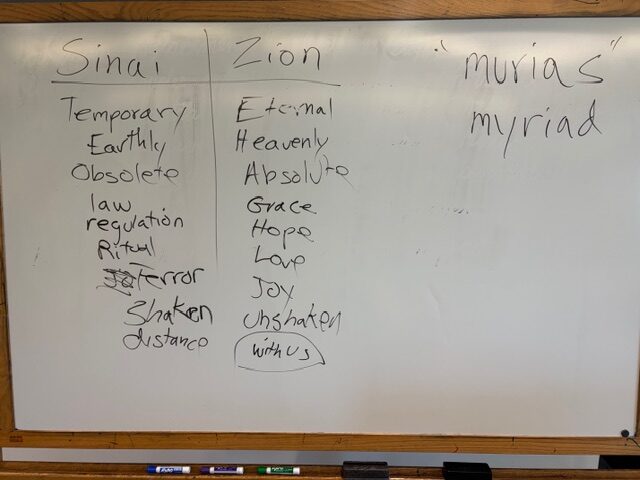 Sinai
Temporary
Earthly
Obsolete
law
regulation
Ritual
terror
Shaken
distance
Zion
Eternal
Heavenly
Absolute
Grace
Hope
Love
Joy
unshaken
with us
"murias"
myriad